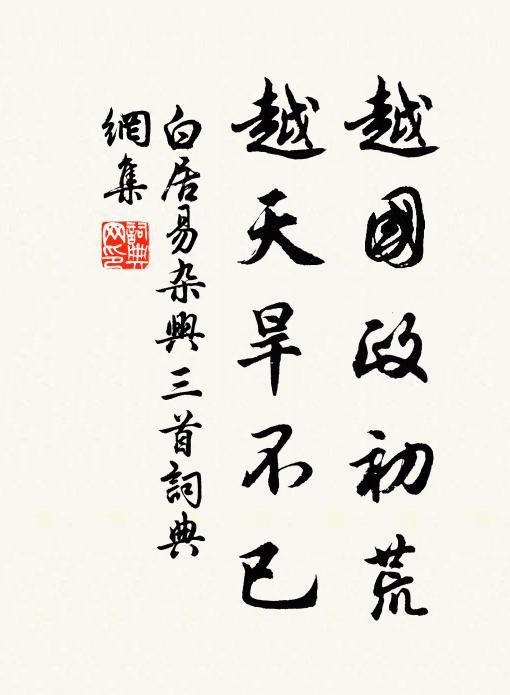 越國政初荒
越天旱不已
白居易杂興三首詞典
網集
詞典
网印